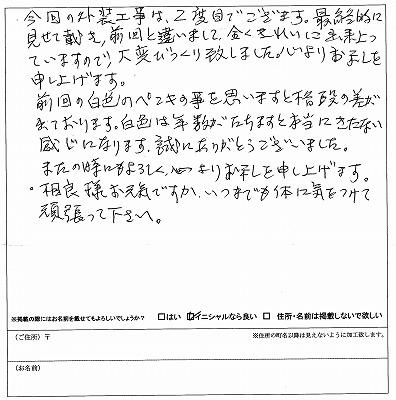 ・今回の外装工事は、2度目でございます。最終的に
見せて戴き、前回と違いまして、全くきれいに出来上っ
ていますので大変びっくり致しました。心よりお礼を
申し上げます。
前回の白色のペンキの事を思いますと格段の差が
出ております。白色は年数がたちますと本当にきたない
感じになります。誠にありがとうございました。
またの時にもよろしく、心よりお礼を申し上げます。
・相良様お元気ですか、いつまでも体に気をつけて
頑張って下さい。
※掲載の際にはお名前を載せてもよろしいでしょうか? □はい ☑イニシャルなら良い □ 住所・名前は掲載しないで欲しい
(ご住所) 〒 ※住所の町名以降は見えないように加工致します。
(お名前)